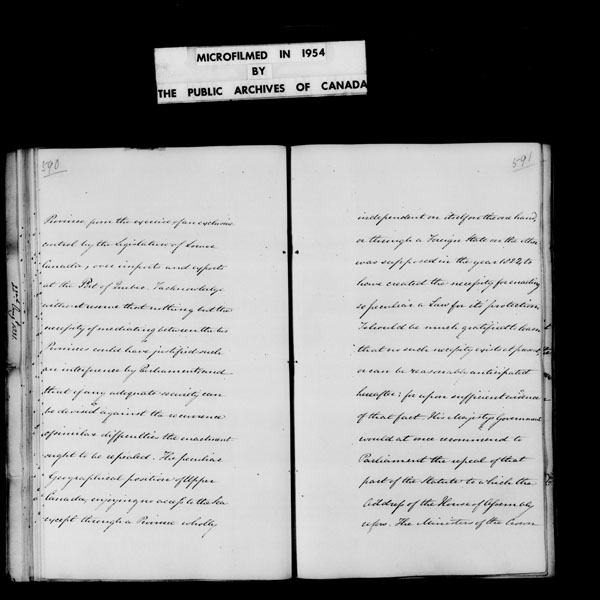 MICROFILMED IN 1954
BY
THE PUBLIC ARCHIVES OF CANADA
590
Province from the exercise of an exclusive
control by the Legislature of Lower
Canada, over imports and exports
at the Port of Quebec. I acknowledge
without reserve that nothing but the
necessity of mediating between the two
Provinces could have justified such
an interference by Parliament and
that if any adequate security can
be devised against the recurrence
of similar difficulties the enactment
ought to be repealed. The peculiar
Geographical position of Upper
Canada, enjoying no access to the Sea
except through a Province wholly
591
independent on itself on the one hand,
or through a Foreign State on the other
was supposed in the year 1822, to
have created the necessity for enacting
so peculiar a Law for its protection
I should be much gratified to learn
that no such necessity exists at present,
or can be reasonably anticipated
hereafter: for upon sufficient evidence
of that fact His Majesty's Government
would at once recommend to
Parliament the repeal of that
part of the Statute to which the
Address of the House of Assembly
refers. The Ministers of the Crown